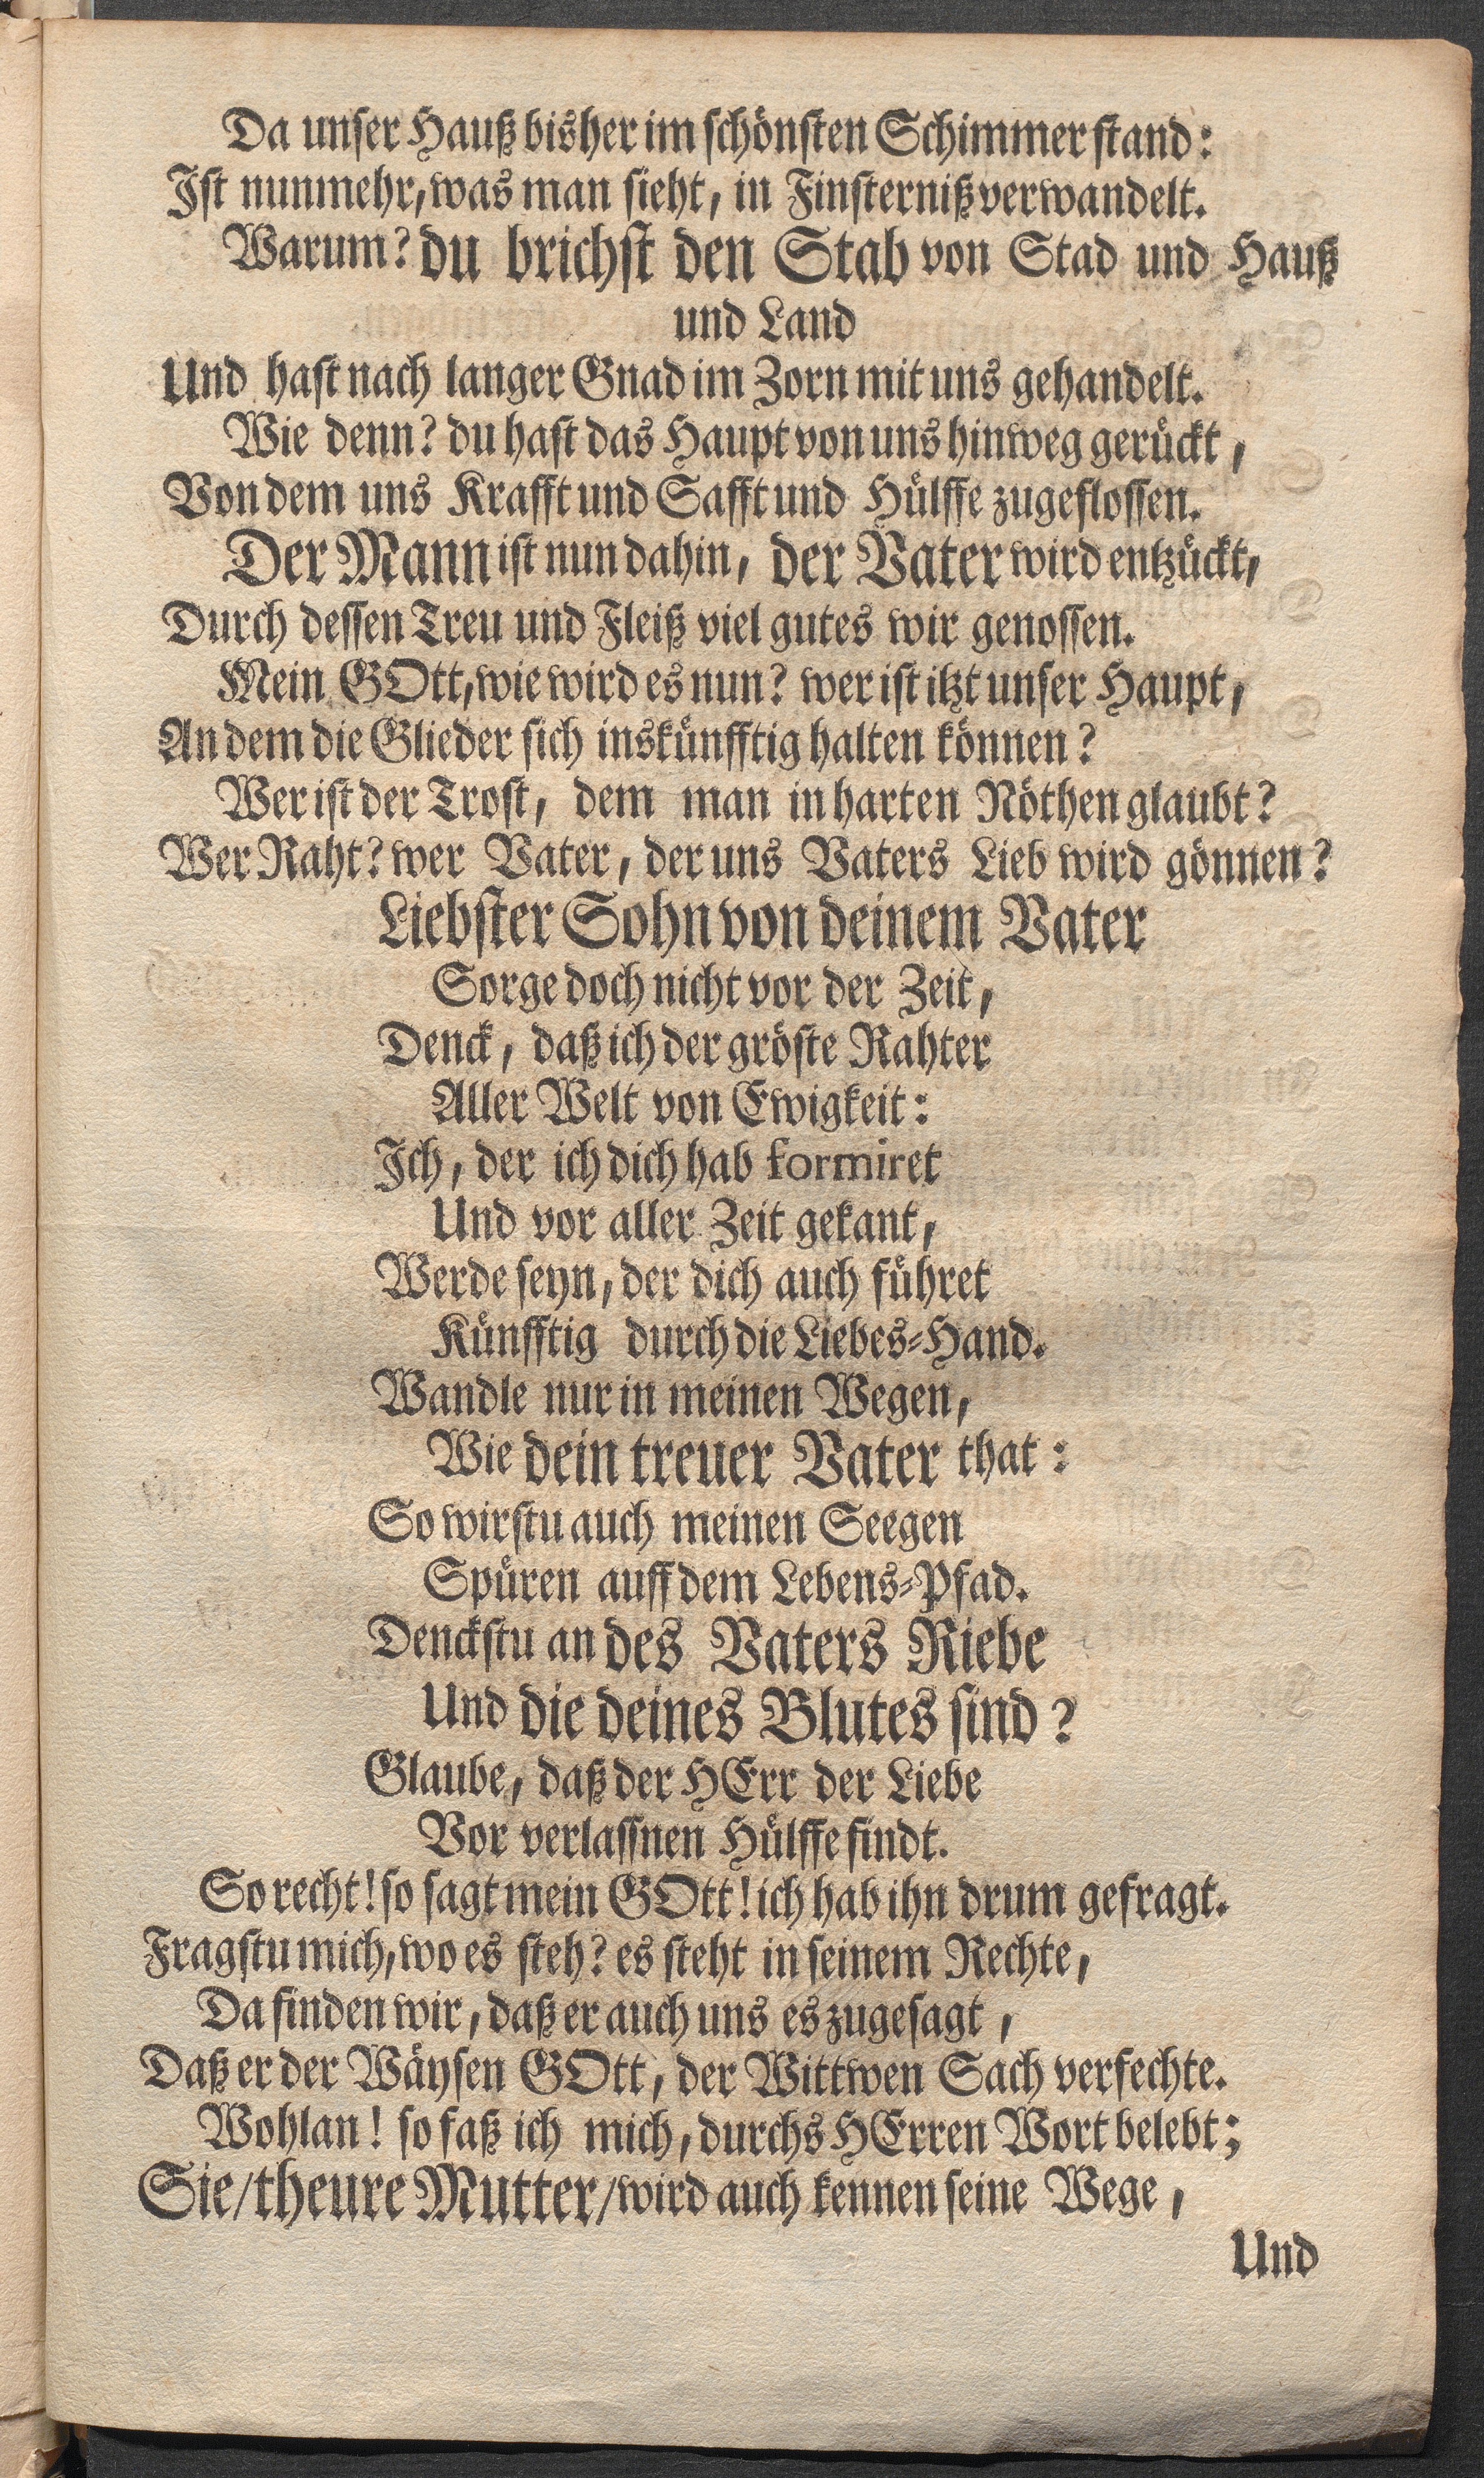 Da unser Hauß bisher im schönsten Schimmer stand:
Ist nunmehr, was man sieht, in Finsterniß verwandelt.
Warum? du brichst den Stab von Stad und Hauß
und Land
Und hast nach langer Gnad im Zorn mit uns gehandelt.
Wie denn? du hast das Haupt von uns hinweg gerückt,
Von dem uns Krafft und Safft und Hülffe zugeflossen.
Der Mann ist nun dahin, der Vater wird entzückt,
Durch dessen Treu und Fleiß viel gutes wir genossen.
Mein GOtt, wie wird es nun? wer ist itzt unser Haupt,
An dem die Glieder sich inskünfftig halten können?
Wer ist der Trost, dem man in harten Nöthen glaubt?
Wer Raht? wer Vater, der uns Vaters Lieb wird gönnen?
Liebster Sohn von deinem Vater
Sorge doch nicht vor der Zeit,
Denck, daß ich der gröste Rahter
Aller Welt von Ewigkeit:
Ich, der ich dich hab formiret
Und vor aller Zeit gekant,
Werde seyn, der dich auch führet
Künfftig durch die Liebes-Hand.
Wandle nur in meinen Wegen,
Wie dein treuer Vater that:
So wirstu auch meinen Seegen
Spüren auff dem Lebens-Pfad.
Denckstu an des Vaters Riebe
Und die deines Blutes sind?
Glaube, daß der HErr der Liebe
Vor verlassnen Hülffe findt.
So recht! so sagt mein GOtt! ich hab ihn drum gefragt.
Fragstu mich, wo es steh? es steht in seinem Rechte,
Da finden wir, daß er auch uns es zugesagt,
Daß er der Wäysen GOtt, der Wittwen Sach verfechte.
Wohlan! so faß ich mich, durchs HErren Wort belebt;
Sie/ theure Mutter/ wird auch kennen seine Wege,
Und